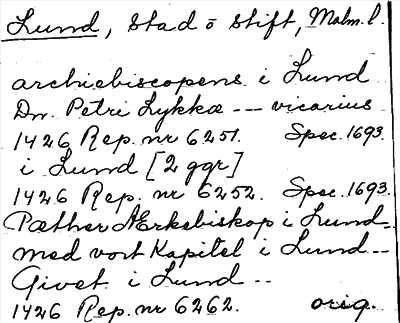 Lund, Stad o Stift, Malm. l.
archiebiscopens i Lund
Dn. Petri Lykkæ --- vicarius
1426 Rep. nr 6251. Spec. 1693.
i Lund [2 ggr]
1426 Rep. nr 6252. Spec. 1693.
Pæther Ærkebiskop i Lund -
med vort Kapitel i Lund --
Givet i Lund --
1426 Rep. nr 6262. orig.